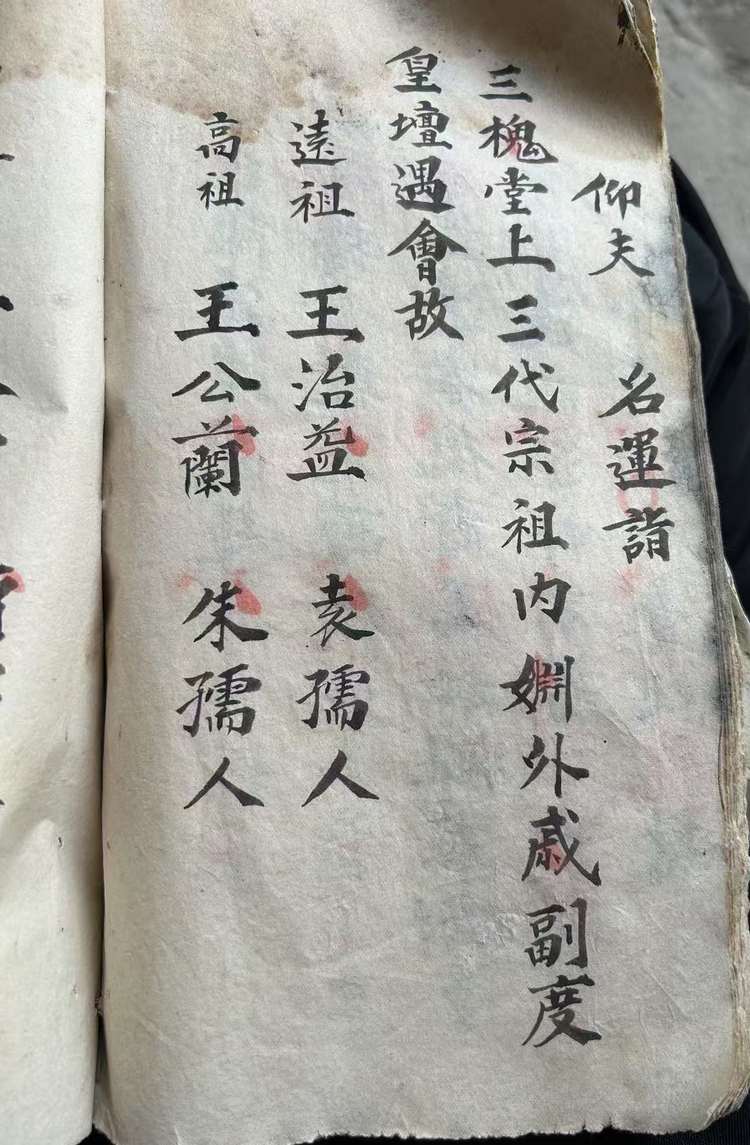 仰夫　名運詣
三槐堂上三代宗祖内婣外戚副度
皇壇遇會故
遠祖　王治益　袁孺人
高祖　王公蘭　朱孺人